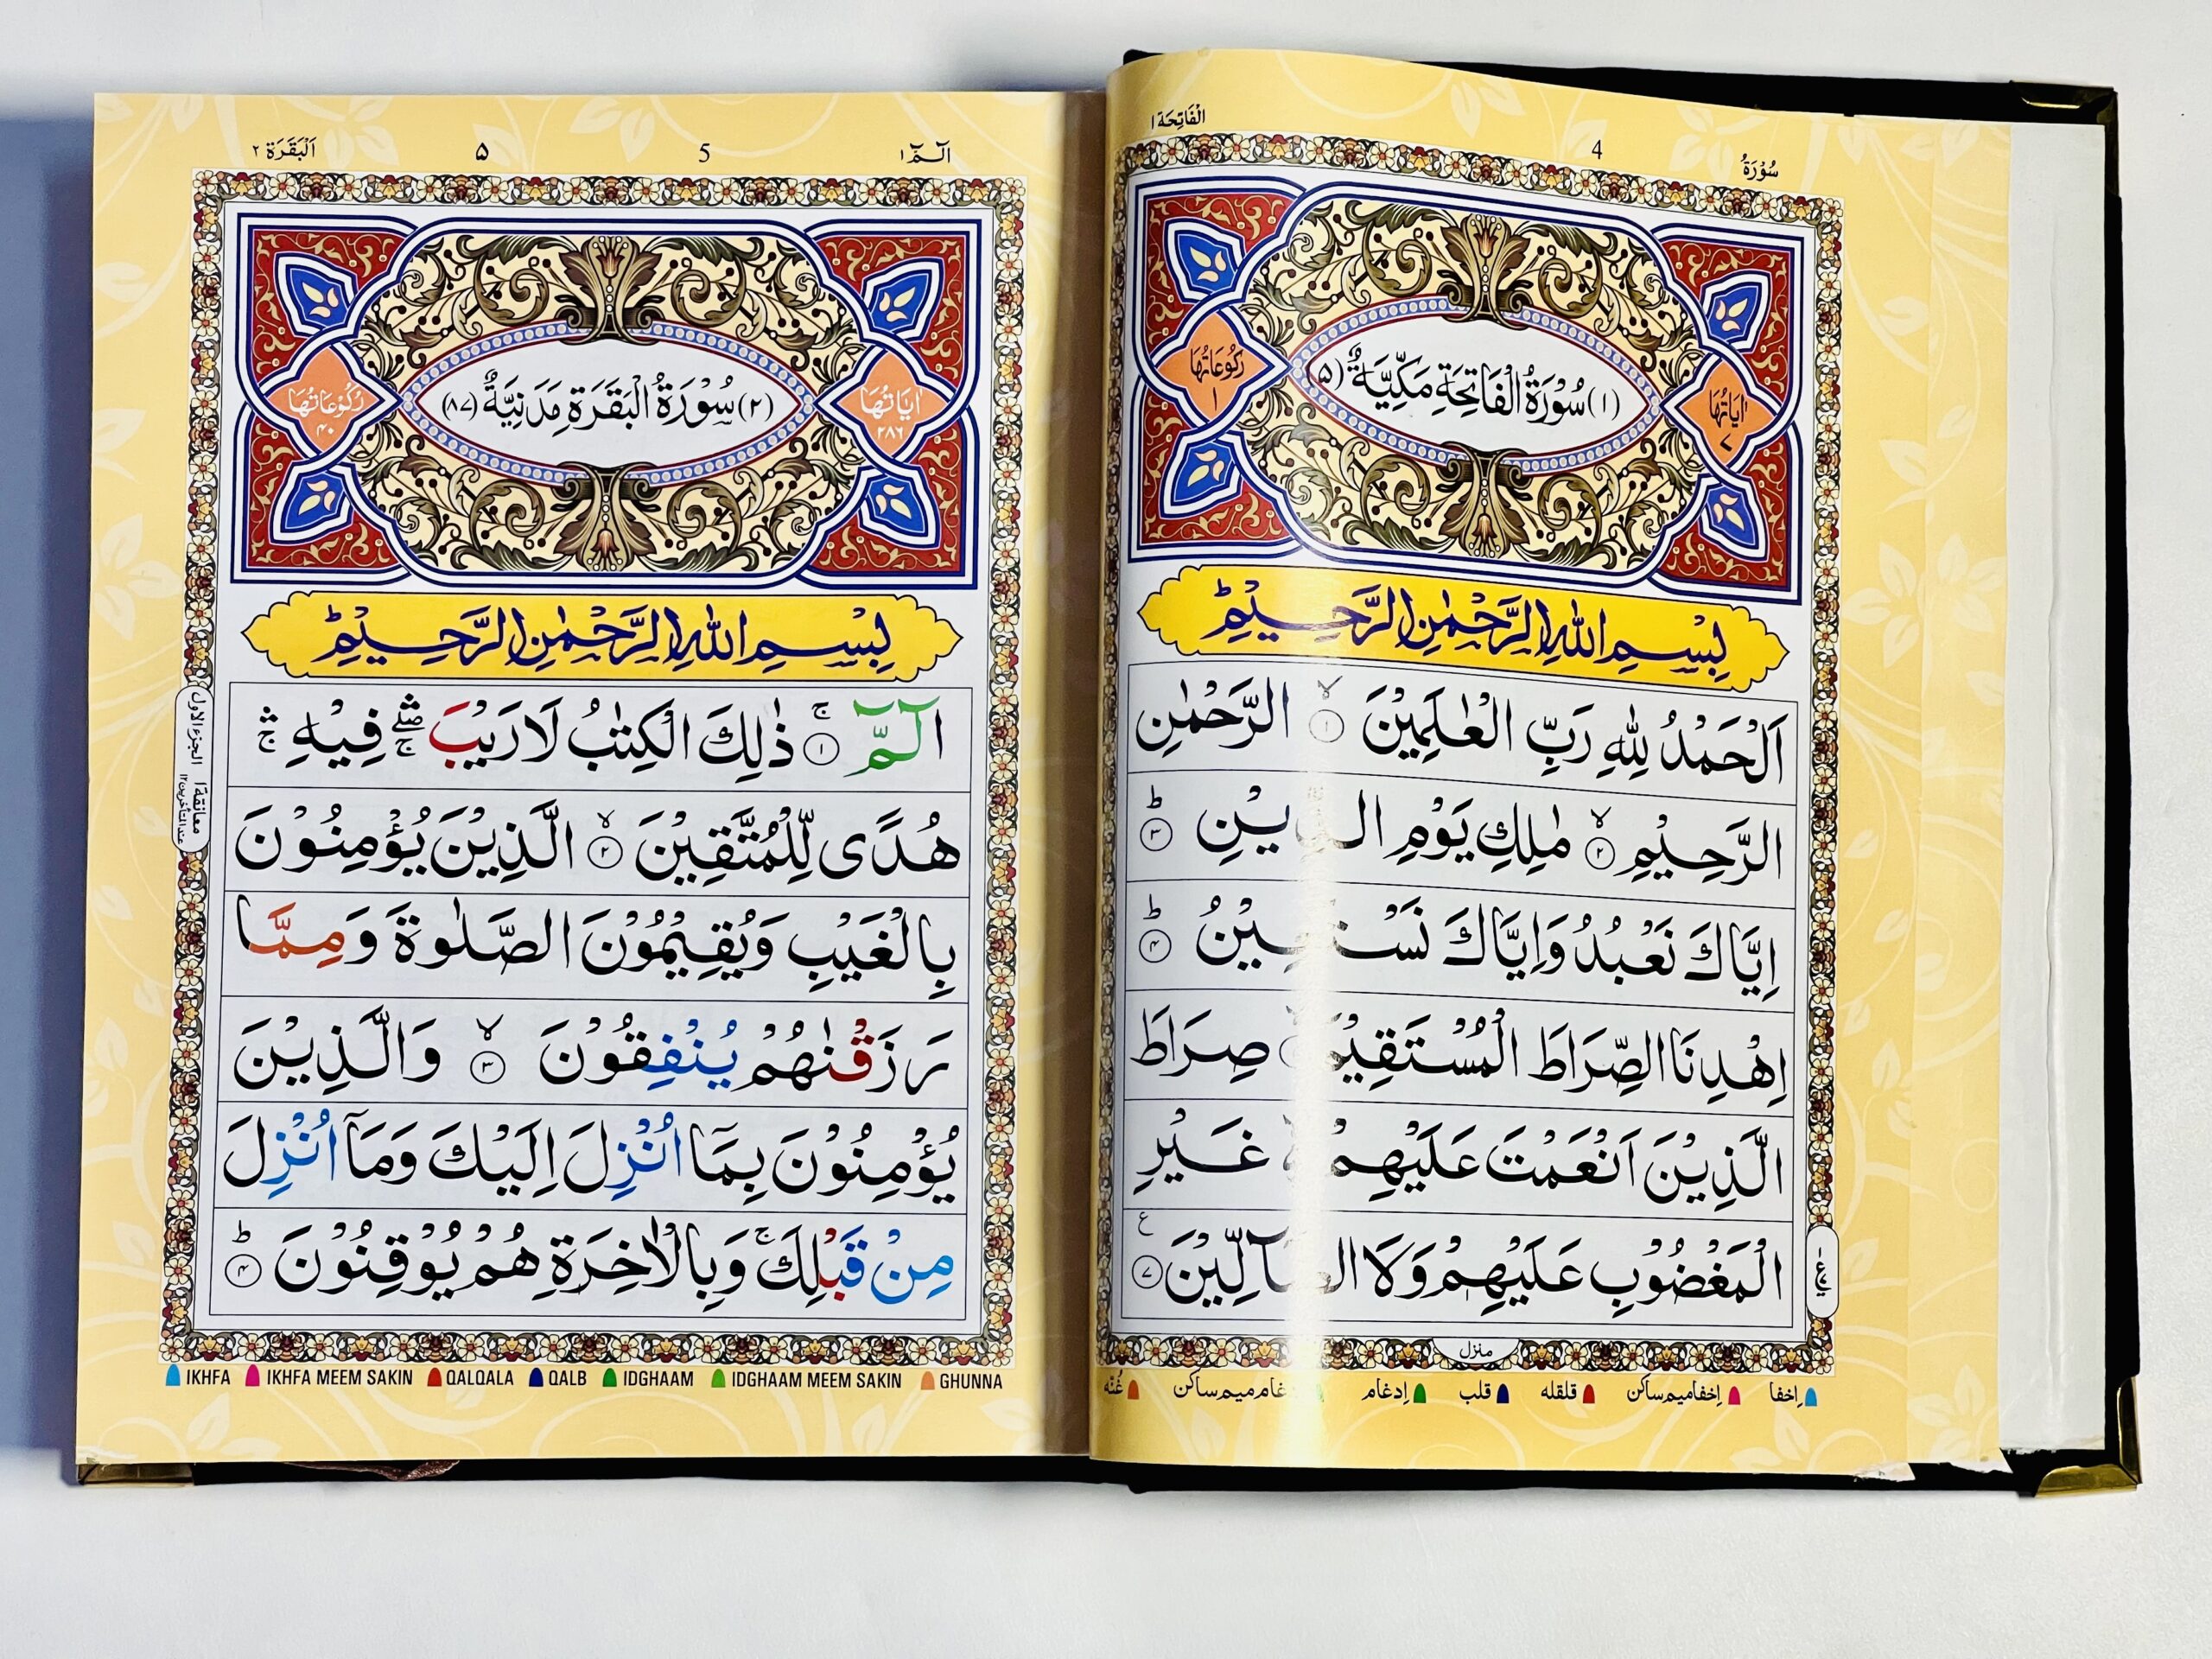 سُوْرَةُ 4 اَلْفَاتِحَة ١
اٰیَاتُهَا ٧
(١) سُوْرَةُ الْفَاتِحَةِ مَكِّيَّةٌ (٥)
رُكُوْعَاتُهَا ١
بِسْمِ اللّٰهِ الرَّحْمٰنِ الرَّحِيْمِ
اَلْحَمْدُ لِلّٰهِ رَبِّ الْعٰلَمِيْنَ ۙ ١ الرَّحْمٰنِ
الرَّحِيْمِ ۙ ٢ مٰلِكِ يَوْمِ الدِّيْنِ ؕ ٣
اِيَّاكَ نَعْبُدُ وَاِيَّاكَ نَسْتَعِيْنُ ؕ ۴
اِهْدِنَا الصِّرَاطَ الْمُسْتَقِيْمَ صِرَاطَ
الَّذِيْنَ اَنْعَمْتَ عَلَيْهِمْ غَيْرِ
الْمَغْضُوْبِ عَلَيْهِمْ وَلَا الضَّآلِّيْنَ ٧
ع
منزل
اِخفا اِخفامیم ساکن قلقله قلب اِدغام میم ساکن غُنّه
الٓمّٓ ١ 5 ۵ اَلْبَقَرَة ٢
اٰیَاتُهَا ٢٨٦
(٢) سُوْرَةُ الْبَقَرَةِ مَدَنِيَّةٌ (٨٧)
رُكُوْعَاتُهَا ۴٠
بِسْمِ اللّٰهِ الرَّحْمٰنِ الرَّحِيْمِ
الٓمّٓ ۚ ١ ذٰلِكَ الْكِتٰبُ لَا رَيْبَ ۛۖۚ فِيْهِ ۛۚ
هُدًى لِّلْمُتَّقِيْنَ ۙ ٢ الَّذِيْنَ يُؤْمِنُوْنَ
بِالْغَيْبِ وَيُقِيْمُوْنَ الصَّلٰوةَ وَمِمَّا
رَزَقْنٰهُمْ يُنْفِقُوْنَ ۙ ٣ وَالَّذِيْنَ
يُؤْمِنُوْنَ بِمَآ اُنْزِلَ اِلَيْكَ وَمَآ اُنْزِلَ
مِنْ قَبْلِكَ ۚ وَبِالْاٰخِرَةِ هُمْ يُوْقِنُوْنَ ؕ ۴
الجزء الاول
معانقة ١
عند المتأخرین ١٢
IKHFA IKHFA MEEM SAKIN QALQALA QALB IDGHAAM IDGHAAM MEEM SAKIN GHUNNA